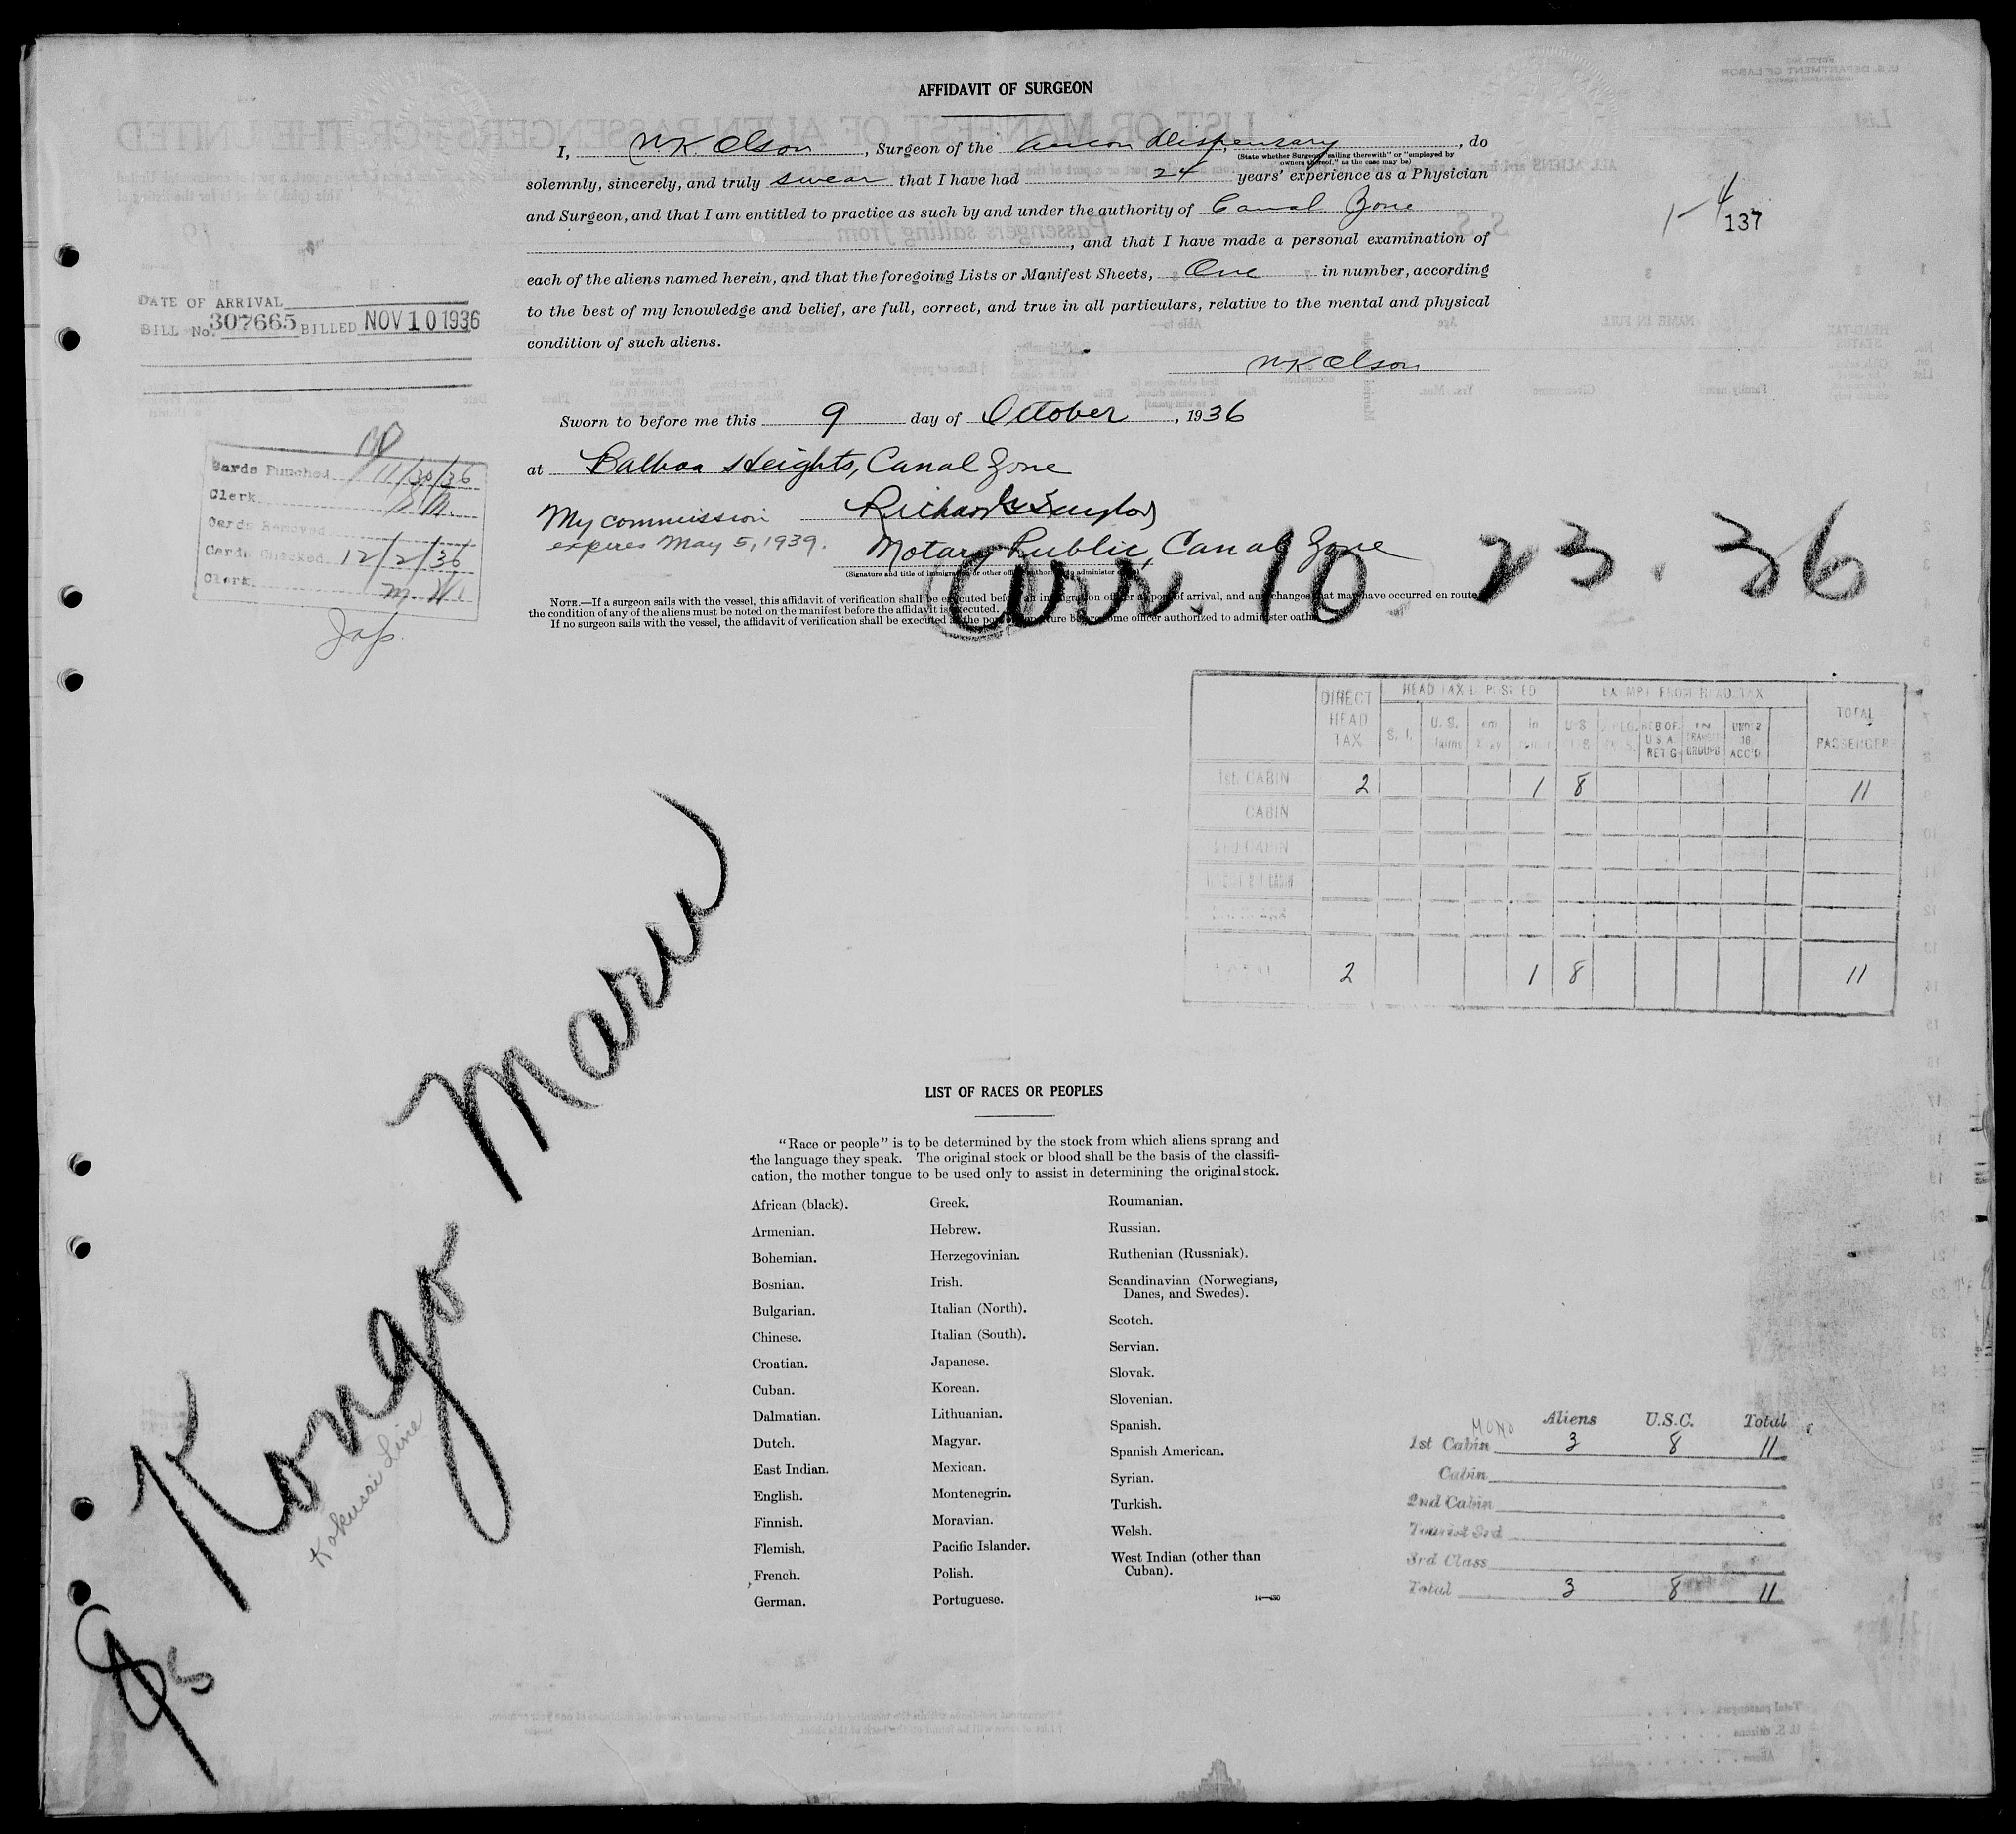 AFFIDAVIT OF SURGEON
I, N.K. Olson, Surgeon of the Ancon Dispensary, do
(State whether Surgeon "sailing therewith" or "employed by
owners thereof," as the case may be)
solemnly, sincerely, and truly swear that I have had 24 years' experience as a Physician
and Surgeon, and that I am entitled to practice as such by and under the authority of Canal Zone
, and that I have made a personal examination of
each of the aliens named herein, and that the foregoing Lists or Manifest Sheets, One in number, according
to the best of my knowledge and belief, are full, correct, and true in all particulars, relative to the mental and physical
condition of such aliens.
NK Olson
Sworn to before me this 9 day of October, 1936
at Balboa Heights, Canal Zone
My commission
expires May 5, 1939.
Notary Public, Canal Zone
(Signature and title of immigration or other officer authorized to administer oaths)
NOTE.—If a surgeon sails with the vessel, this affidavit of verification shall be executed before an immigration officer at port of arrival, and any changes that may have occurred en route
the condition of any of the aliens must be noted on the manifest before the affidavit is executed.
If no surgeon sails with the vessel, the affidavit of verification shall be executed at the port of departure before some officer authorized to administer oaths
Arr. 10. 23. 36
1-4
137
DATE OF ARRIVAL
BILL No. 307665 BILLED NOV 10 1936
Cards Punched 11/30/36
Clerk S.M.
Cards Removed
Cards Checked 12/2/36
Clerk
Jap.
DIRECT HEAD TAX
HEAD TAX DEPOSITED
EXEMPT FROM HEAD TAX
TOTAL PASSENGERS
S. I.
U. S.
in
IN TRANSIT GROUPS
UNDER 16 ACC'D
1st. CABIN 2 1 8 11
CABIN
2nd CABIN
TOTAL 2 1 8 11
Kongo Maru
Kokusai Line
LIST OF RACES OR PEOPLES
"Race or people" is to be determined by the stock from which aliens sprang and
the language they speak. The original stock or blood shall be the basis of the classifi-
cation, the mother tongue to be used only to assist in determining the original stock.
African (black).
Armenian.
Bohemian.
Bosnian.
Bulgarian.
Chinese.
Croatian.
Cuban.
Dalmatian.
Dutch.
East Indian.
English.
Finnish.
Flemish.
French.
German.
Greek.
Hebrew.
Herzegovinian.
Irish.
Italian (North).
Italian (South).
Japanese.
Korean.
Lithuanian.
Magyar.
Mexican.
Montenegrin.
Moravian.
Pacific Islander.
Polish.
Portuguese.
Roumanian.
Russian.
Ruthenian (Russniak).
Scandinavian (Norwegians,
Danes, and Swedes).
Scotch.
Servian.
Slovak.
Slovenian.
Spanish.
Spanish American.
Syrian.
Turkish.
Welsh.
West Indian (other than
Cuban).
Aliens U.S.C. Total
MONO
1st Cabin 3 8 11
Cabin
2nd Cabin
Tourist 3rd
3rd Class
Total 3 8 11